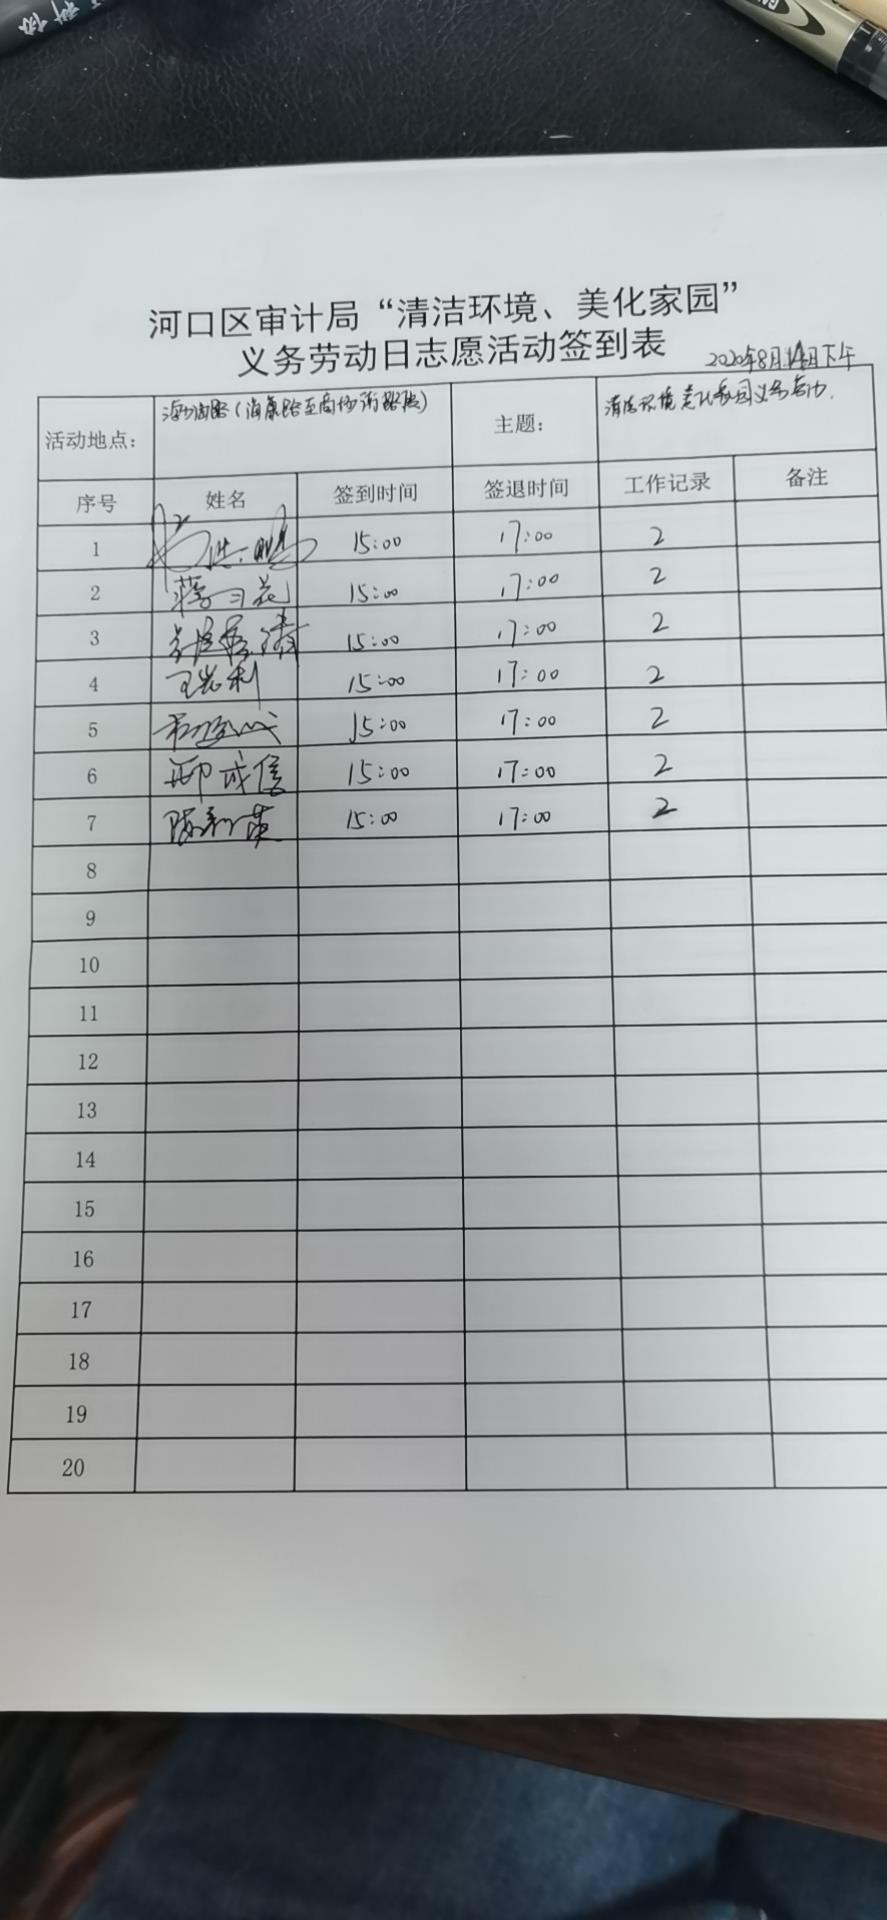 河口区审计局“清洁环境、美化家园”
义务劳动日志愿活动签到表
2020年8月14日下午
活动地点： 主题： 清洁环境美化家园义务劳动.
序号 姓名 签到时间 签退时间 工作记录 备注
1 15:00 17:00 2
2 15:00 17:00 2
3 15:00 17:00 2
4 15:00 17:00 2
5 15:00 17:00 2
6 邢成信 15:00 17:00 2
7 15:00 17:00 2
8
9
10
11
12
13
14
15
16
17
18
19
20